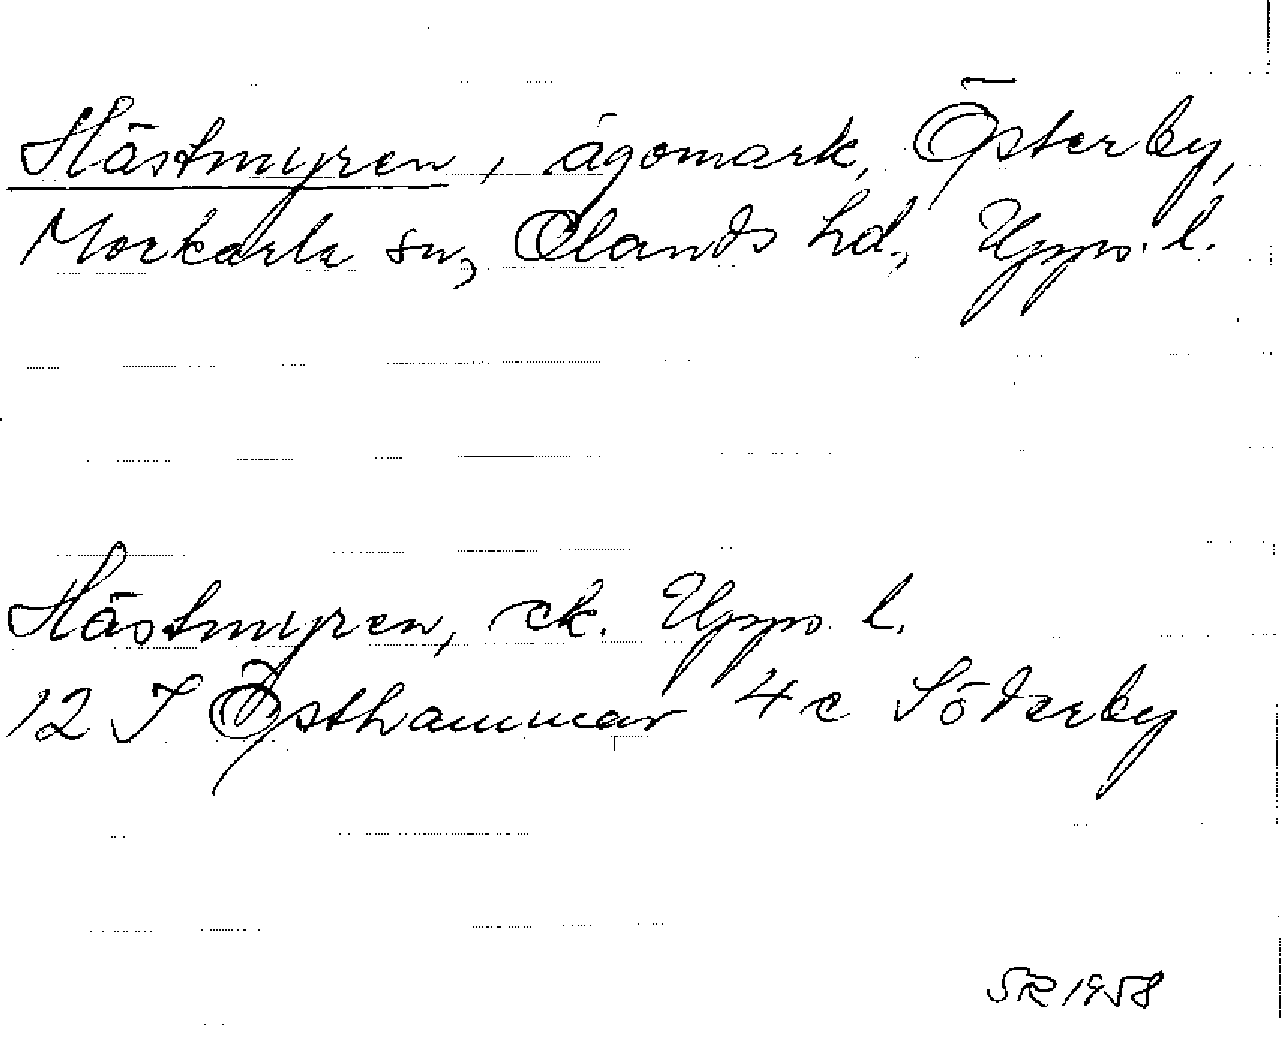 Hästmyren, ägomark, Österby,
Morkarla sn, Olands hd, Upps. l.
Hästmyren, ek. Upps. l.
12 I Östhammar 4 c Söderby
SR 1958